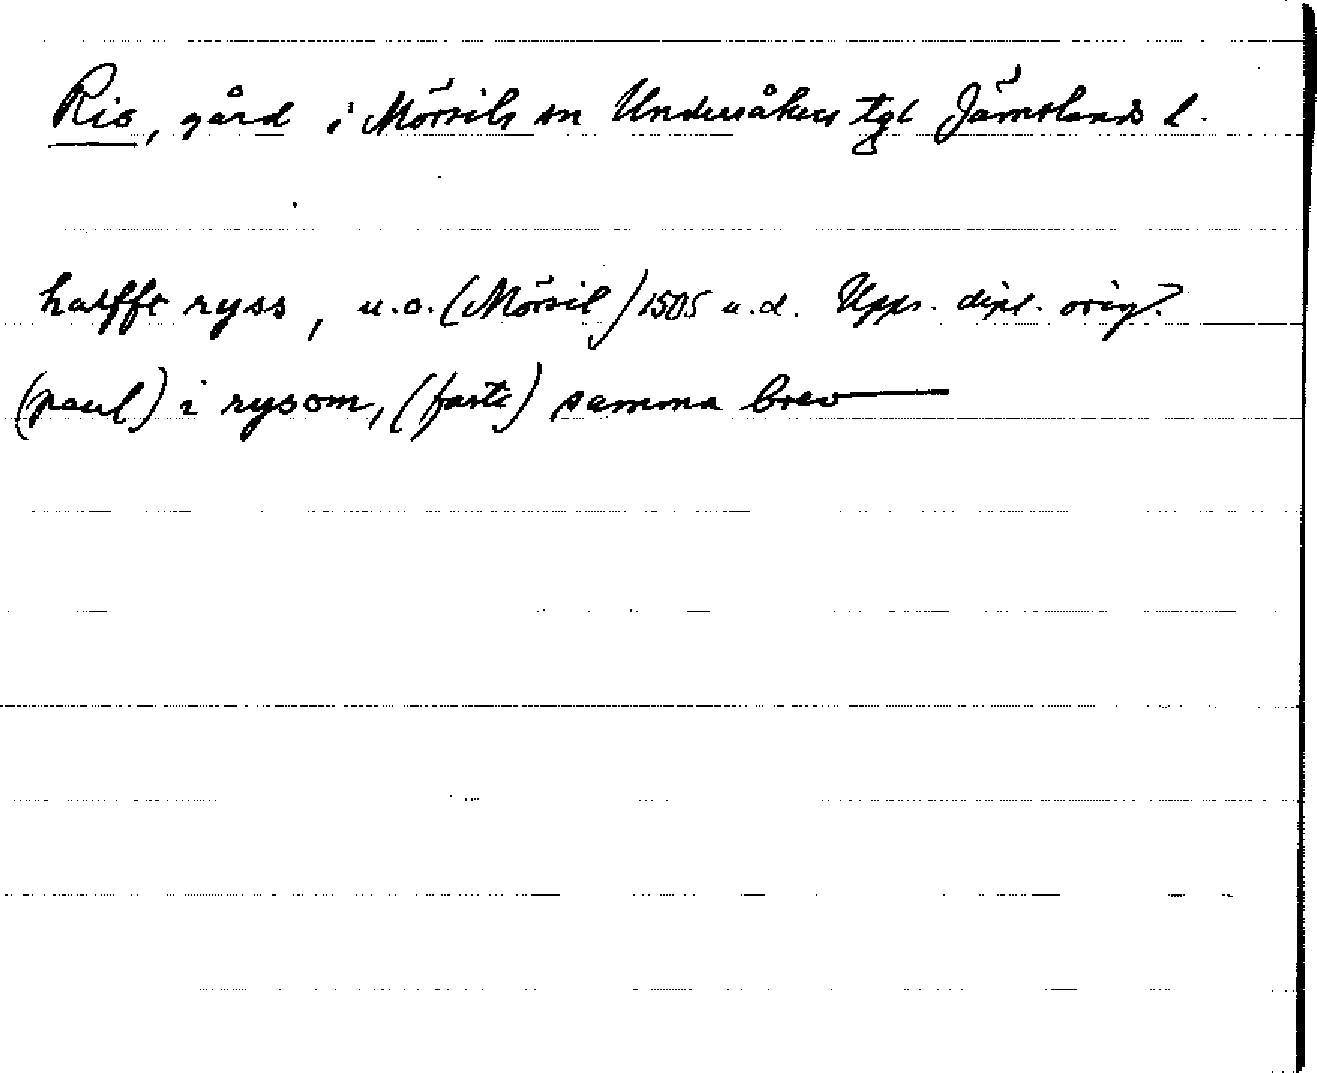 Ris, gård i Mörsils sn Undersåkers tgl Jämtlands l.
halfft ryss, u.o. (Mörsil) 1505 u.d. Upps. dipl. orig?
(paul) i rysom, (faste) samma brev